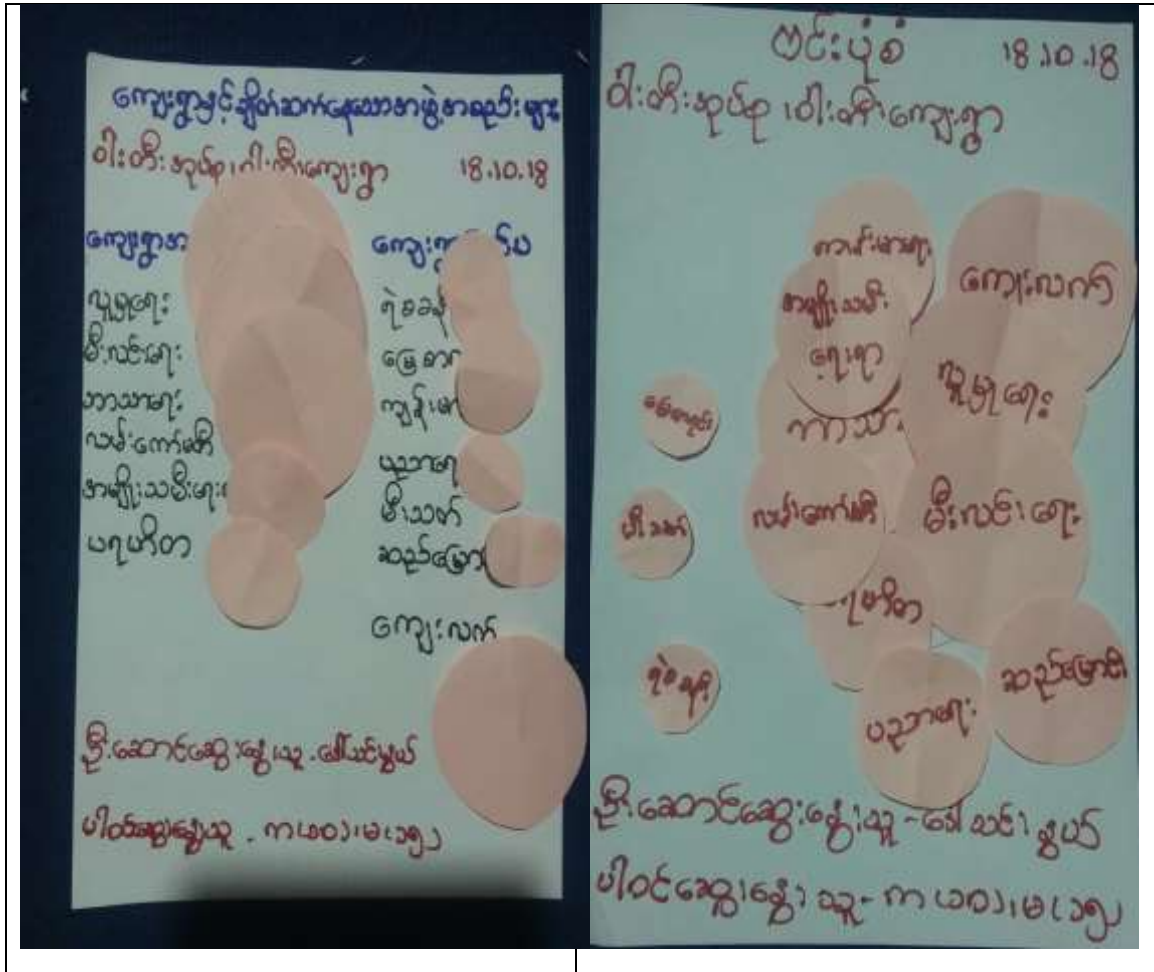 ကျေးရွာနှင့်ချိတ်ဆက်နေသောအဖွဲ့အစည်းများ
ဝါးတီးအုပ်စု၊ဝါးတီးကျေးရွာ 18.10.18
ကျေးရွာအ
လူမှုရေး
မီးလင်းရေး
ဘာသာရေး
လမ်းကော်မတီ
အမျိုးသမီးရေး
ပရဟိတ
ကျေးရွာ ပ
ရဲစခန်
မြေစာ
ကျန်းမာ
ပညာရေ
မီးသတ်
ဆည်မြောင်
ကျေးလက်
ဦးဆောင်ဆွေးနွေးသူ-ဒေါ်သင်းနွယ်
ပါဝင်ဆွေးနွေးသူ-
ဗင်းပုံစံ 18.10.18
ဝါးတီးအုပ်စု၊ဝါးတီးကျေးရွာ
ကျန်းမာရေး
ကျေးလက်
အမျိုးသမီး
ရေးရာ
လူမှုရေး
ဘာသာ
လမ်းကော်မတီ
မီးလင်းရေး
မီးသတ်
ရဟိတ
ရဲစခန်း
ဆည်မြောင်း
ပညာရေး
ဦးဆောင်ဆွေးနွေးသူ-ဒေါ်သင်းနွယ်
ပါဝင်ဆွေးနွေးသူ-